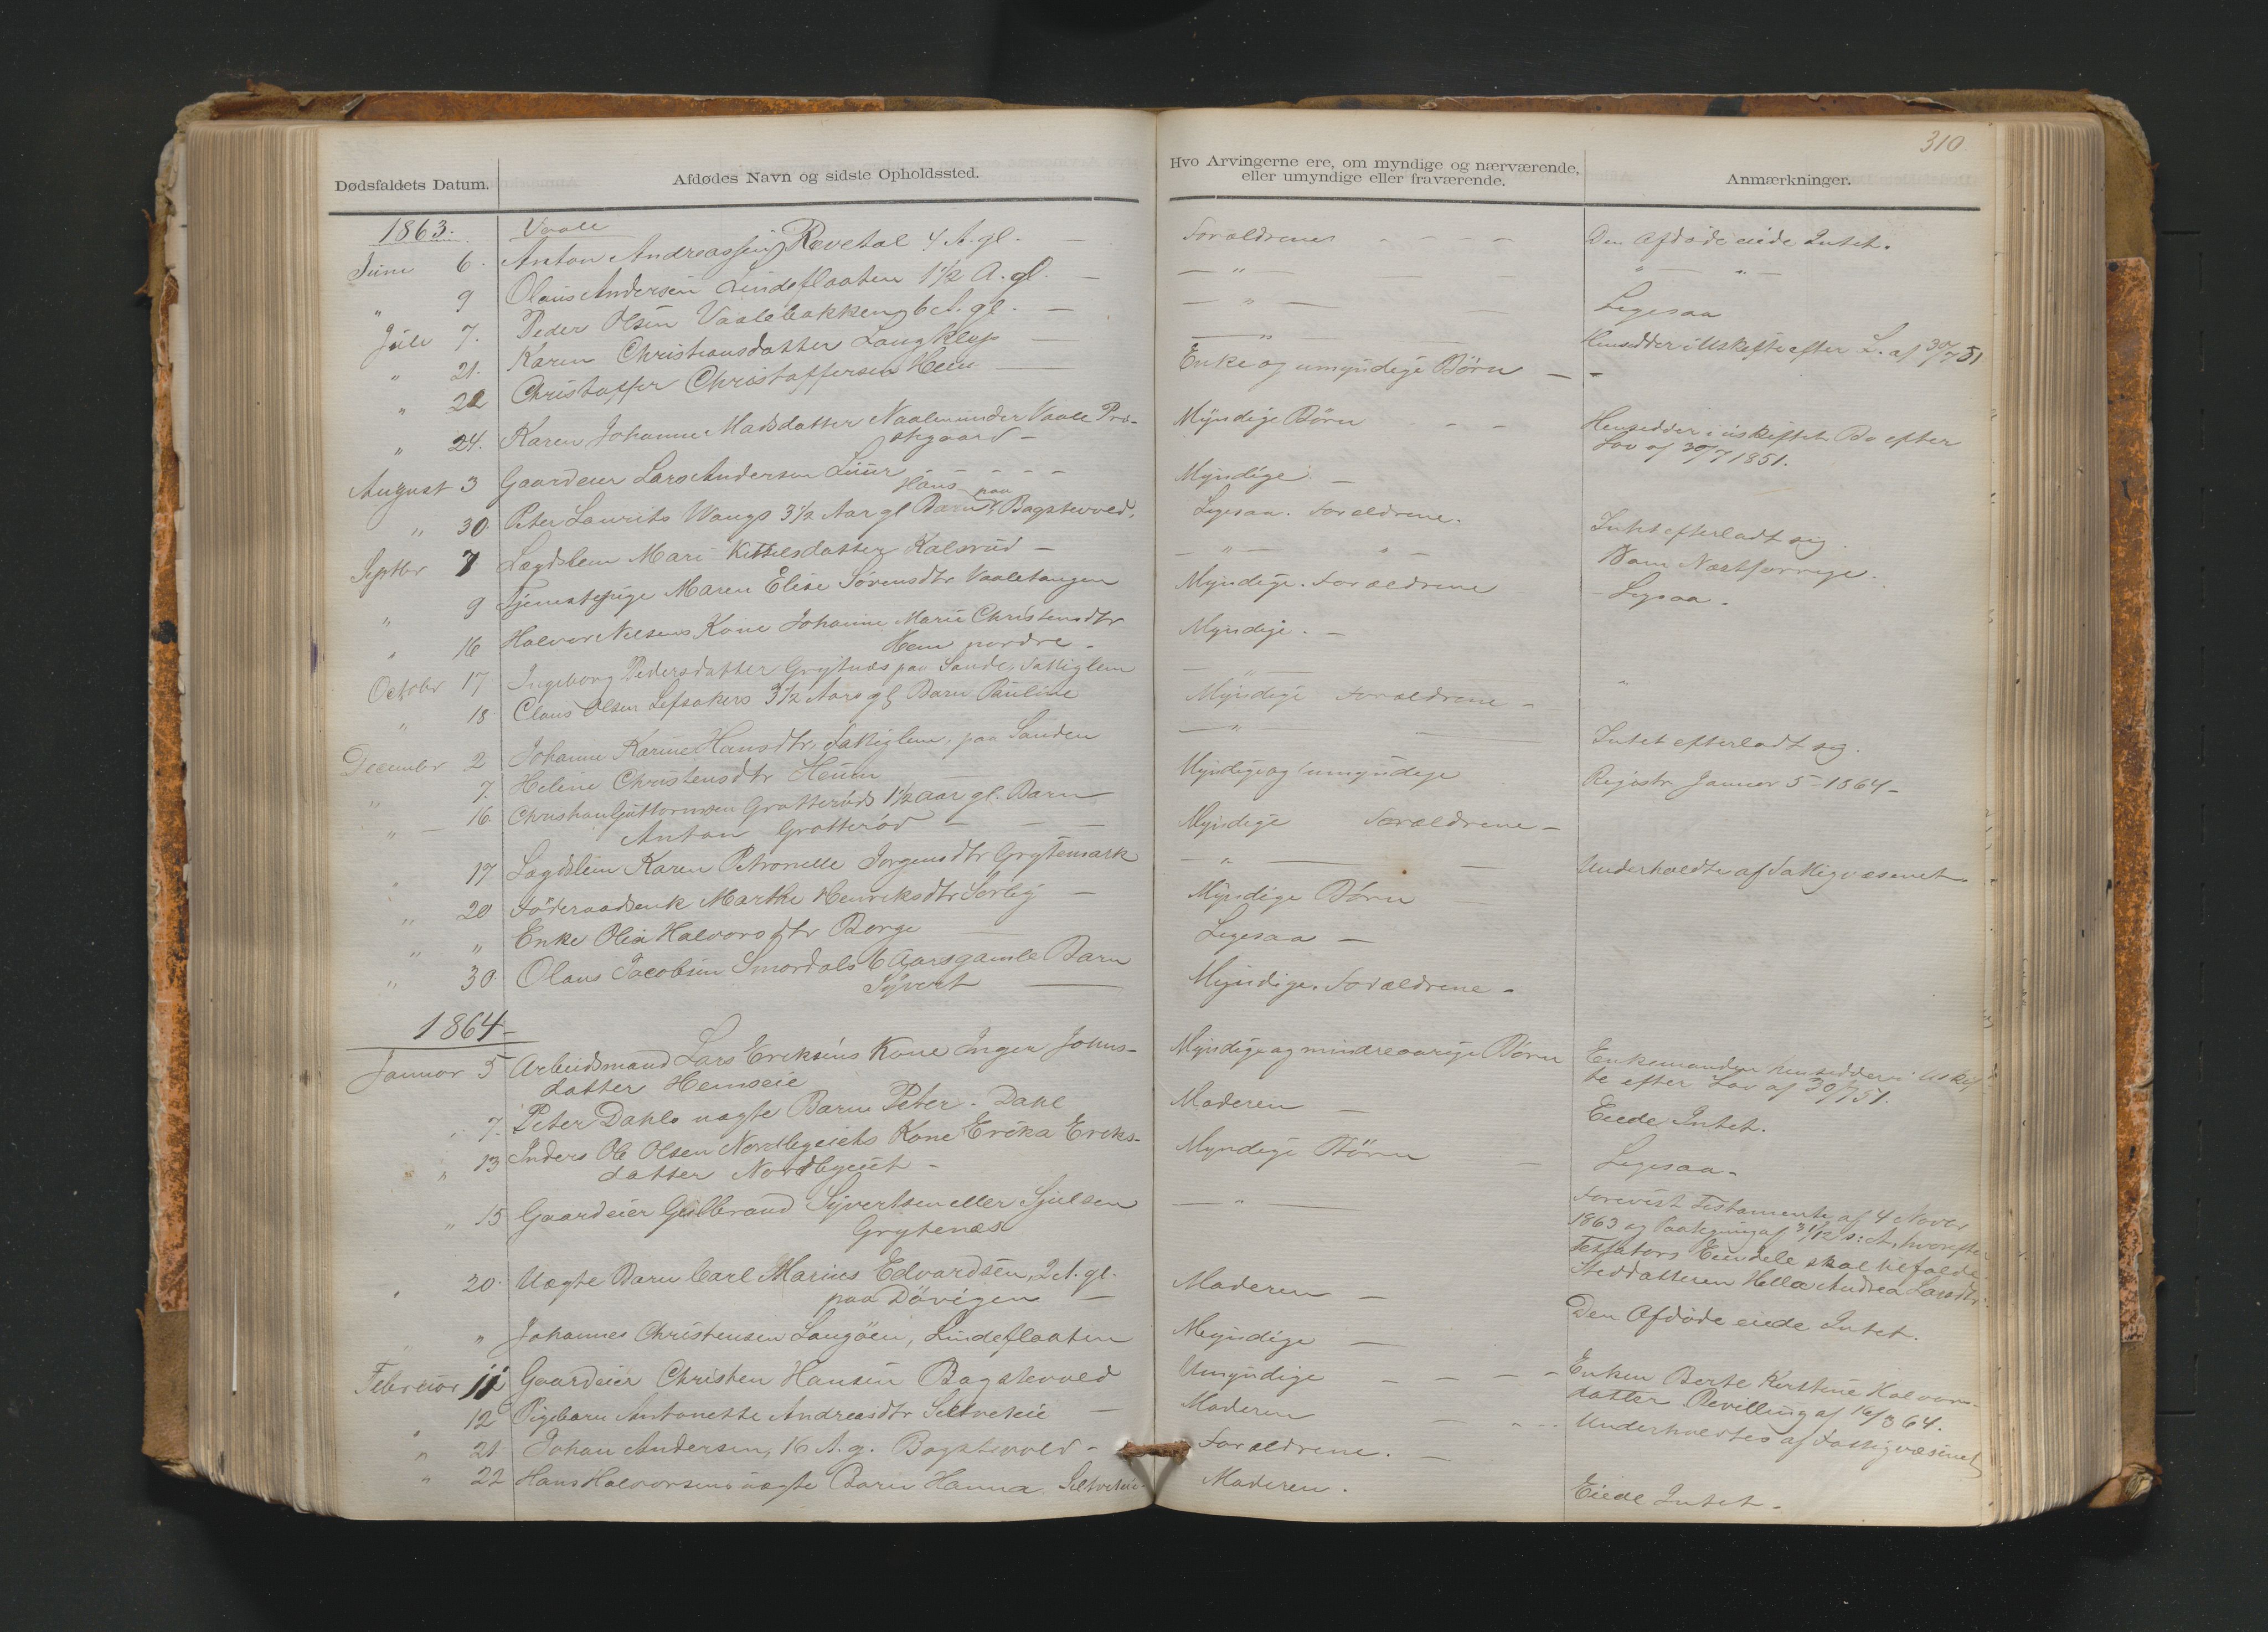 310
Dødsfaldets Datum. Afdødes Navn og sidste Opholdssted. Hvo Arvingerne ere, om myndige og nærværende, eller umyndige eller fraværende. Anmærkninger.
1863. Vaale
Juni 6. Anton Andreassen Revetal 4 A. gl. - Forældrene - - - Den Afdøde eiede Intet.
" 9 Olaus Andersen Lindeflaaten 1 1/2 A. gl. - - " - - " - " -
Juli 7. Peder Olsen Vaalebakken 6 A. gl. - - " - Ligesaa
" 21. Karen Christiansdatter Langklep - - " -
" 22 Christoffer Christoffersen Hem - Enke og umyndige Børn - - Hensidder i Uskifte efter L. af 30/7 51
" 24. Karen Johanne Madsdatter under Vaale Præ- Myndige Børn - - Hensidder i uskiftet Bo efter
stegaard - Lov af 30/7 1851.
August 3 Gaardeier Lars Andersen - - - - Myndige -
" 30. Peter Laurits Wangs 3 1/2 Aar gl. Barn Hans paa Bagstevold. Ligesaa. Forældrene. Intet efterladt sig.
Septbr 7 Lægdslem Mari Kittilsdatter Kalsrud - - " - " - Som Næstforrige.
" 9 Tjenestepige Maren Elise Sørensdtr Vaaletangen Myndige. Forældrene - Ligesaa.
" 16 Halvor Nilsens Kone Johanne Marie Christensdtr Myndige. -
Hem nordre -
October 17 Ingeborg Pedersdatter Grytnæs paa Sande, Fattiglem - " - "
" 18 Claus Olsen Lefsakers 3 1/2 Aars gl Barn Pauline Myndige Forældrene -
December 2 Johanne Karine Hansdtr, Fattiglem, paa Sanden - " - Intet efterladt sig.
" 7. Heline Christensdtr Heum Myndige og umyndige Registr. Januar 5 - 1864 -
" - 16. Christian Guttormsen Gratterøds 1 1/2 Aar gl. Barn Myndige Forældrene -
Anton Gratterød - - -
" 17 Lægdslem Karen Petronelle Jørgensdtr Grytemark - " - Underholdtes af Fattigvæsenet.
" 20 Føderaadsenk Marthe Henriksdtr Sørby - Myndige Børn
" " Enke Olea Halvorsdtr Borge - Ligesaa -
" 30. Olaus Jacobsen Smørdals 6 Aarsgamle Barn Myndige. Forældrene -
Syvert -
1864 -
Januar 5 Arbeidsmand Lars Eriksens Kone Inger Johns- Myndige og mindreaarige Børn Enkemanden hensidder i Uskif-
datter Hemseie te efter Lov af 30/7 51.
" 7. Peter Dahls uægte Barn Peter. Dahl Moderen - Eiede Intet.
" 13 Inders Ole Olsen Nordbyeiets Kone Erika Eriks- Myndige Børn - Ligesaa -
datter Nordbyeiet -
" 15 Gaardeier Gulbrand Syvertsen eller Sjulsen - " - Forevist Testamente af 4 Novbr
Grytenæs 1863 og Paategning af 31/12 s: A., hvorefter
Testators Eiendele skal tilfalde
Steddatteren Hella Andrea Larsdtr.
" 20. Uægte Barn Carl Marius Edvardsen, 2 A. gl. Moderen -
paa Døvigen -
" " Johannes Christensen Langøen, Lindeflaaten Myndige - Den Afdøde eiede Intet.
Februar 11 Gaardeier Christen Hansen Bagstevold Umyndige - - - - Enken Berte Kirstine Halvors-
datter Bevilling af 16/3 64.
" 12 Pigebarn Antonette Andreasdtr Seltveteie - Moderen - - - Underholdtes af Fattigvæsenet
" 21. Johan Andersen, 16 A. g. Bagstevold - Forældrene. -
" 22 Hans Halvorsens uægte Barn Hanna Seltveteie. Moderen. Eiede Intet -